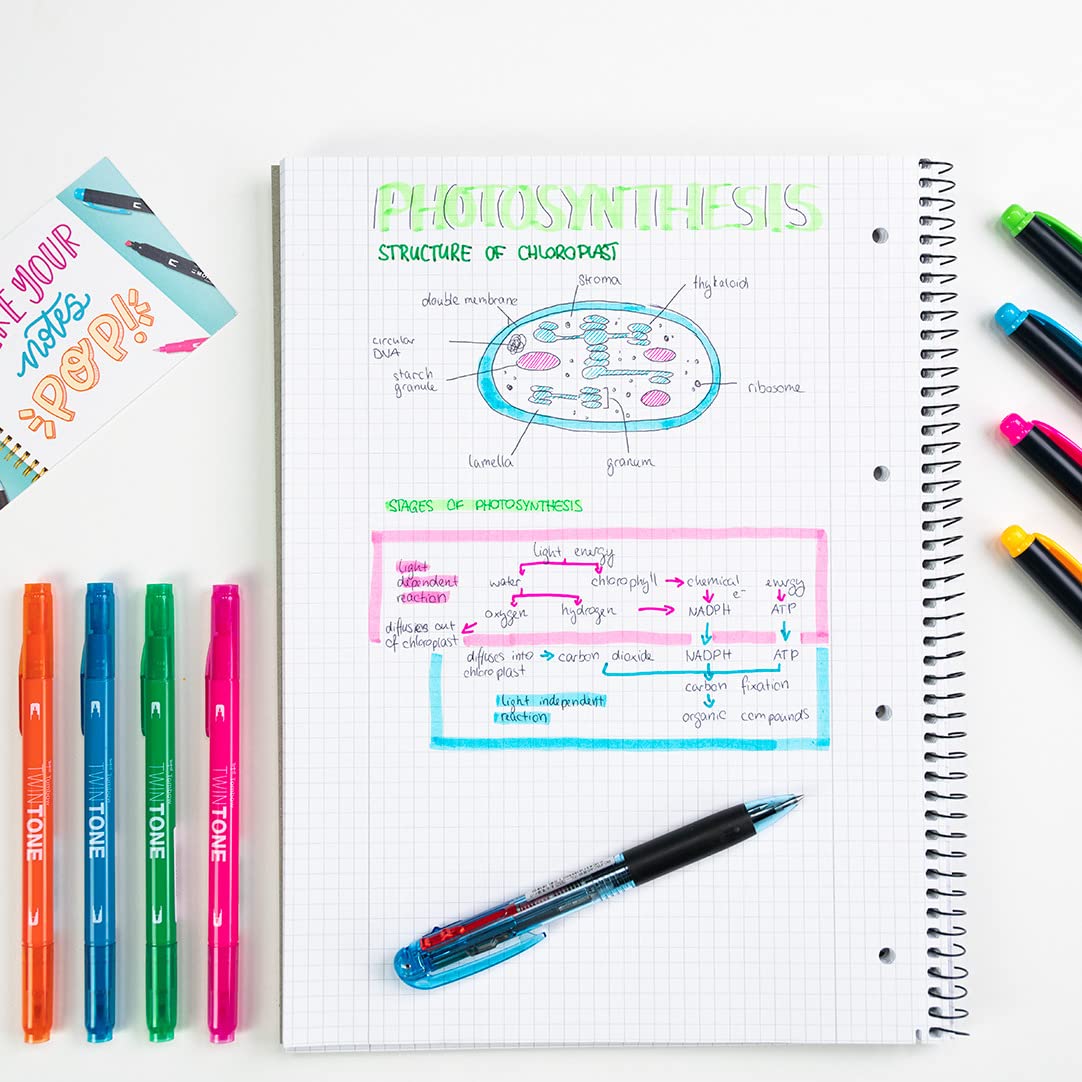 PHOTOSYNTHESIS
STRUCTURE OF CHLOROPLAST
stroma
thykaloid
double membrane
circular
DNA
starch
granule
ribosome
lamella
granum
STAGES OF PHOTOSYNTHESIS
light energy
light
dependent
reaction
water
chlorophyll
chemical
energy
e-
oxygen
hydrogen
NADPH
ATP
diffuses out
of chloroplast
diffuses into
chloroplast
carbon dioxide
NADPH
ATP
carbon fixation
light independent
reaction
organic compounds
YOUR
notes
POP!
Tombow
TWINTONE
Tombow
TWINTONE
Tombow
TWINTONE
Tombow
TWINTONE